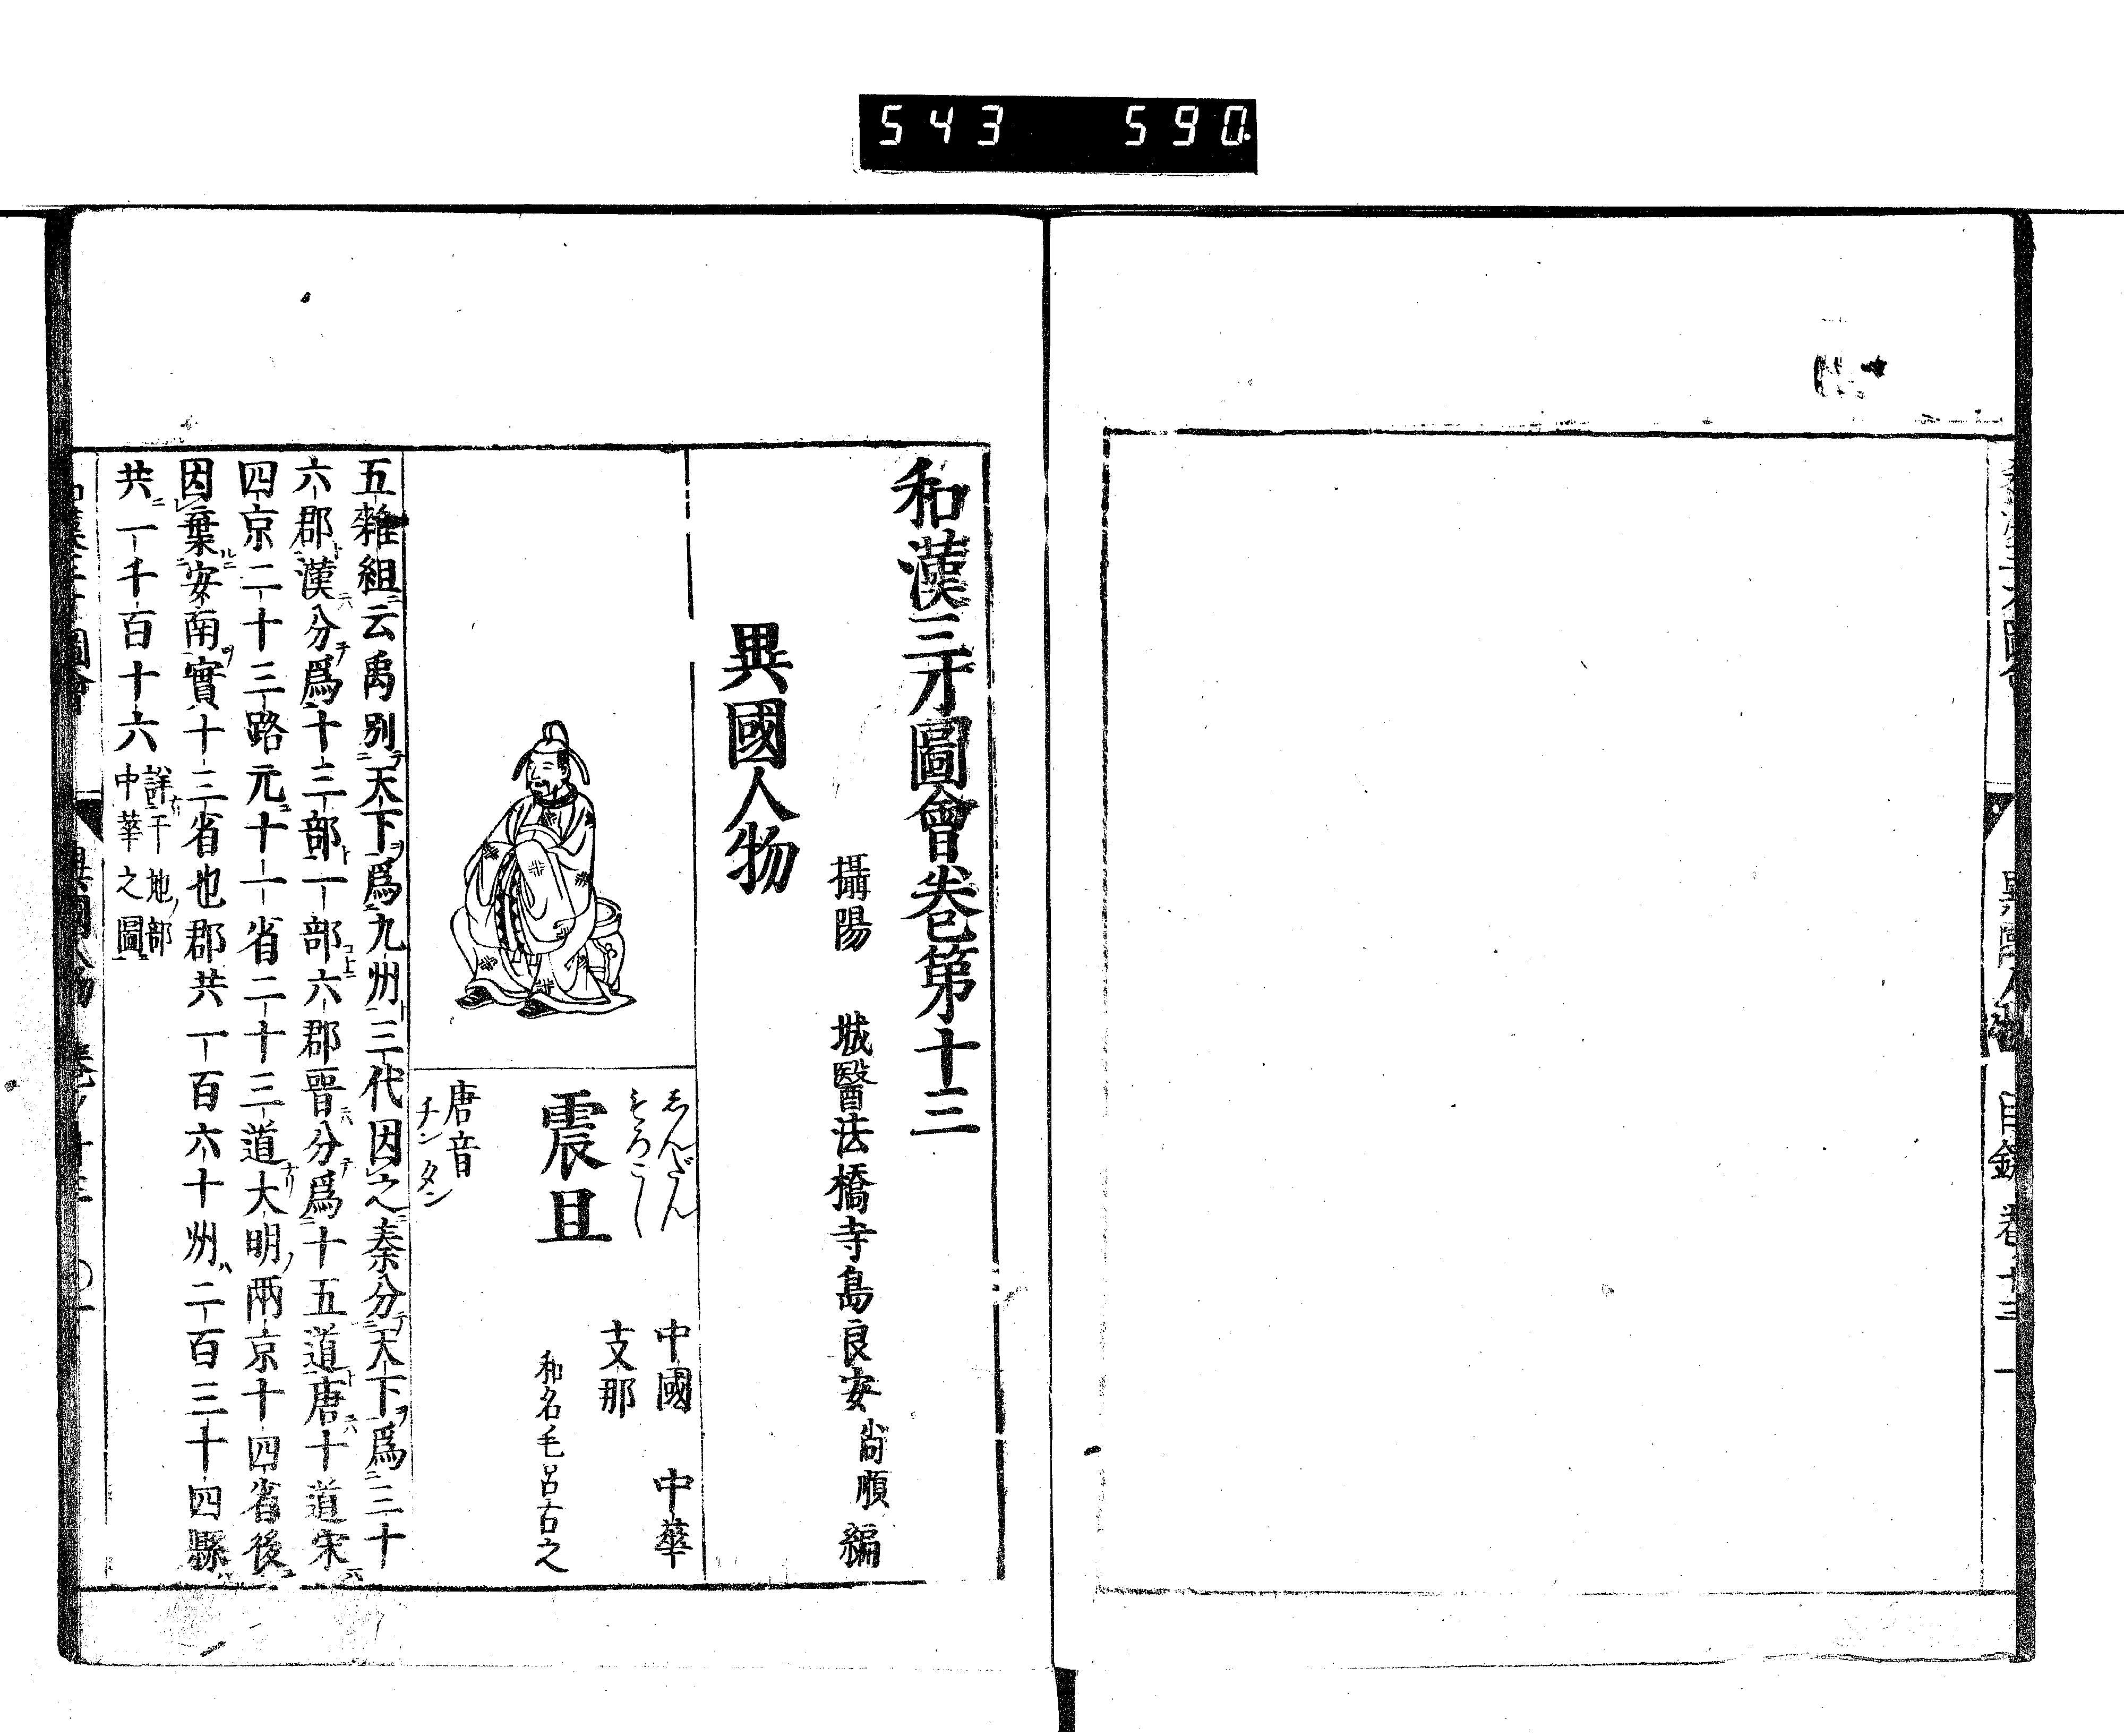 543 590
和漢三才圖會卷第十三
攝陽 城醫法橋寺島良安尚順 編
異國人物
しんだん
もろこし
震旦
中國 中華
支那
和名毛呂古之
唐音
チンタン
五雜組云禹別天下爲九州三代因之秦分天下爲三十
六郡漢分爲十三部一部六郡晋分爲十五道唐十道宋
四京二十三路元十一省二十三道大明兩京十四省後
因棄安南實十三省也郡共一百六十州二百三十四縣
共一千百十六
詳于地部
中華之圖